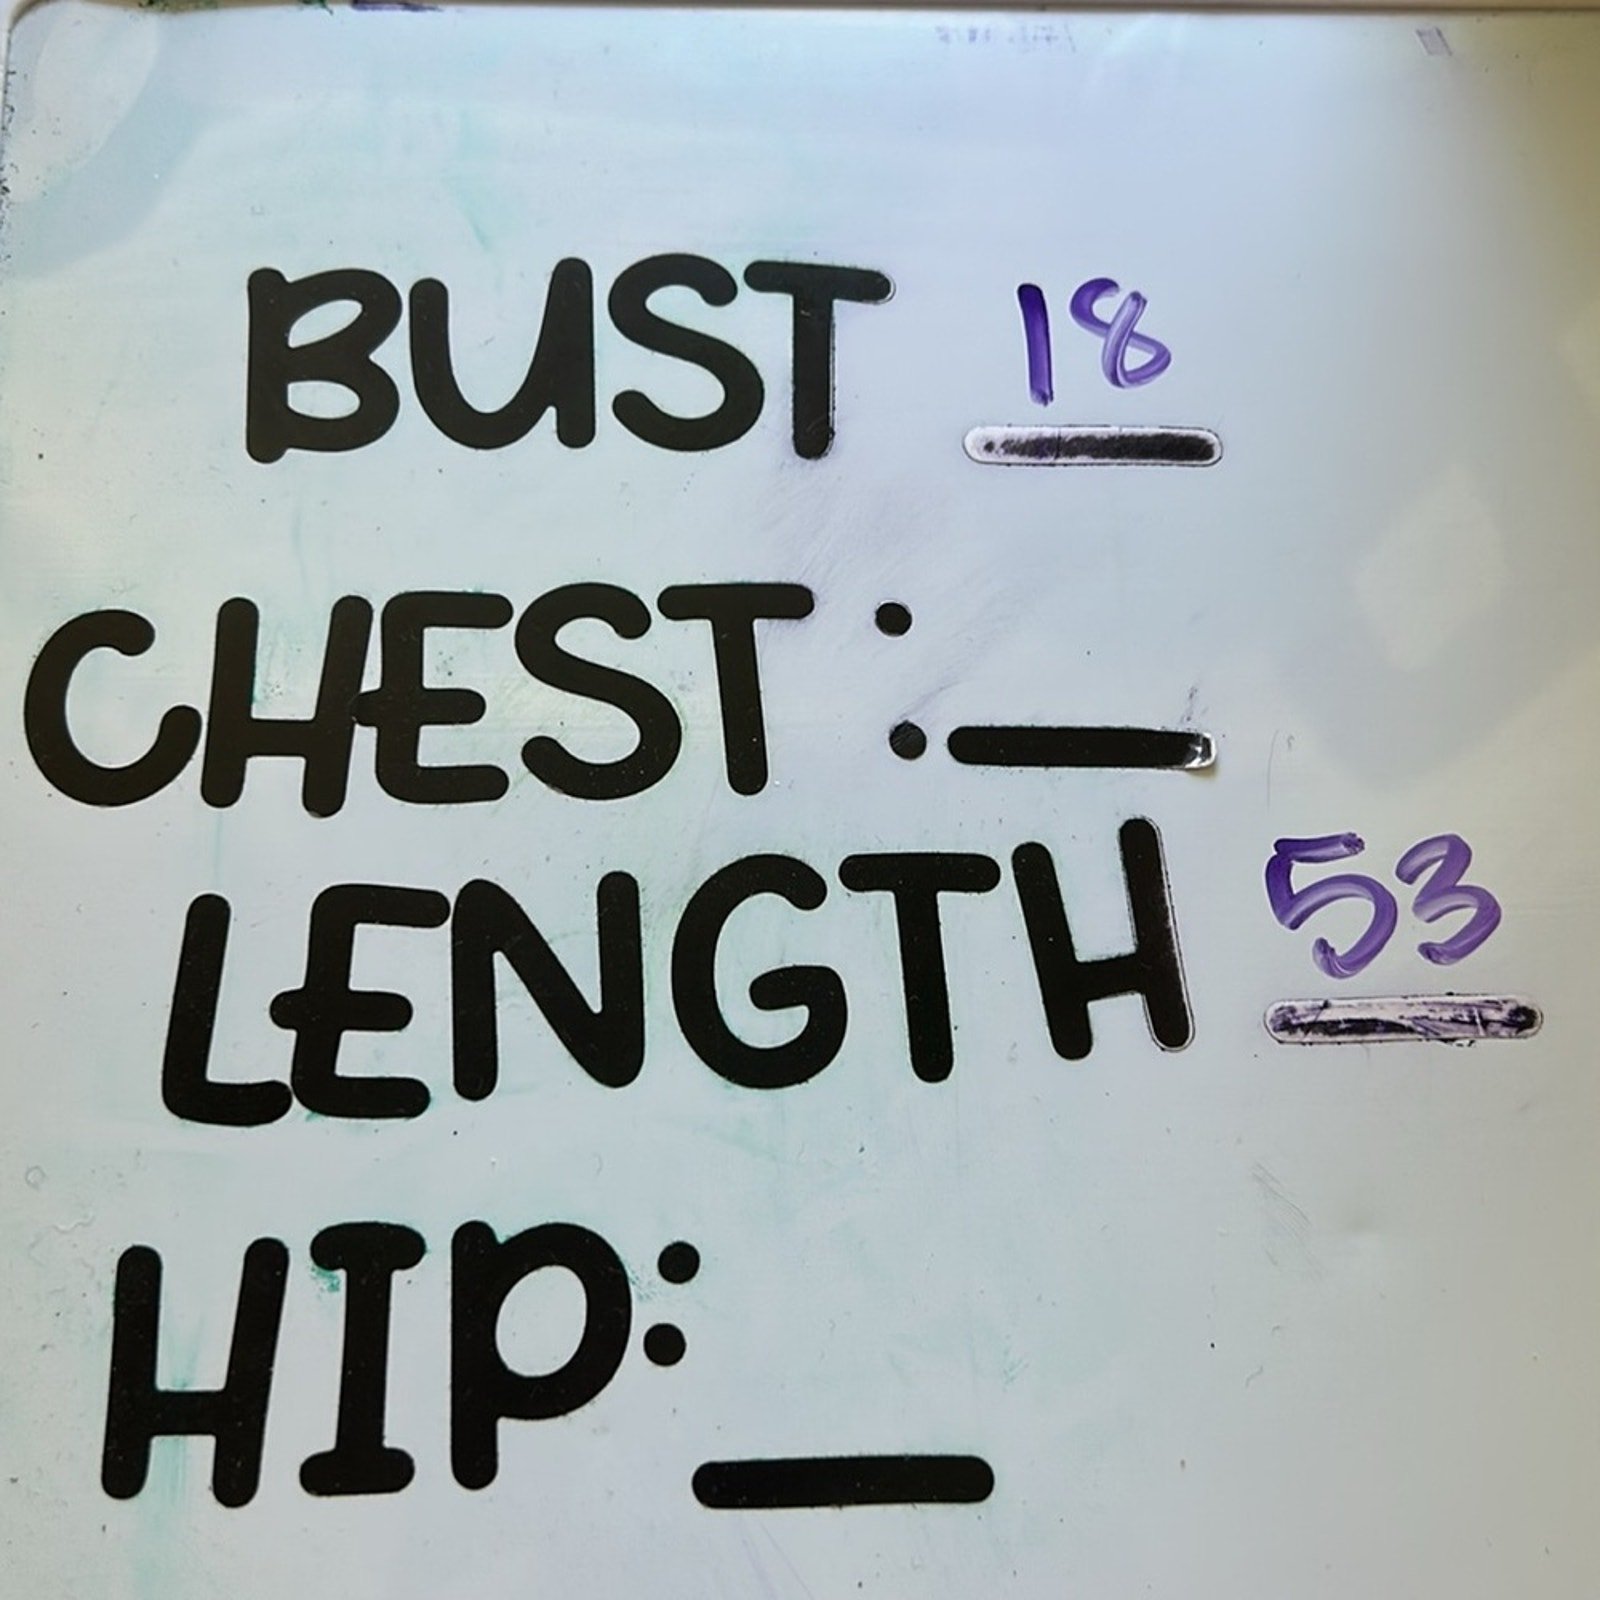 BUST 18
CHEST :
LENGTH 53
HIP: